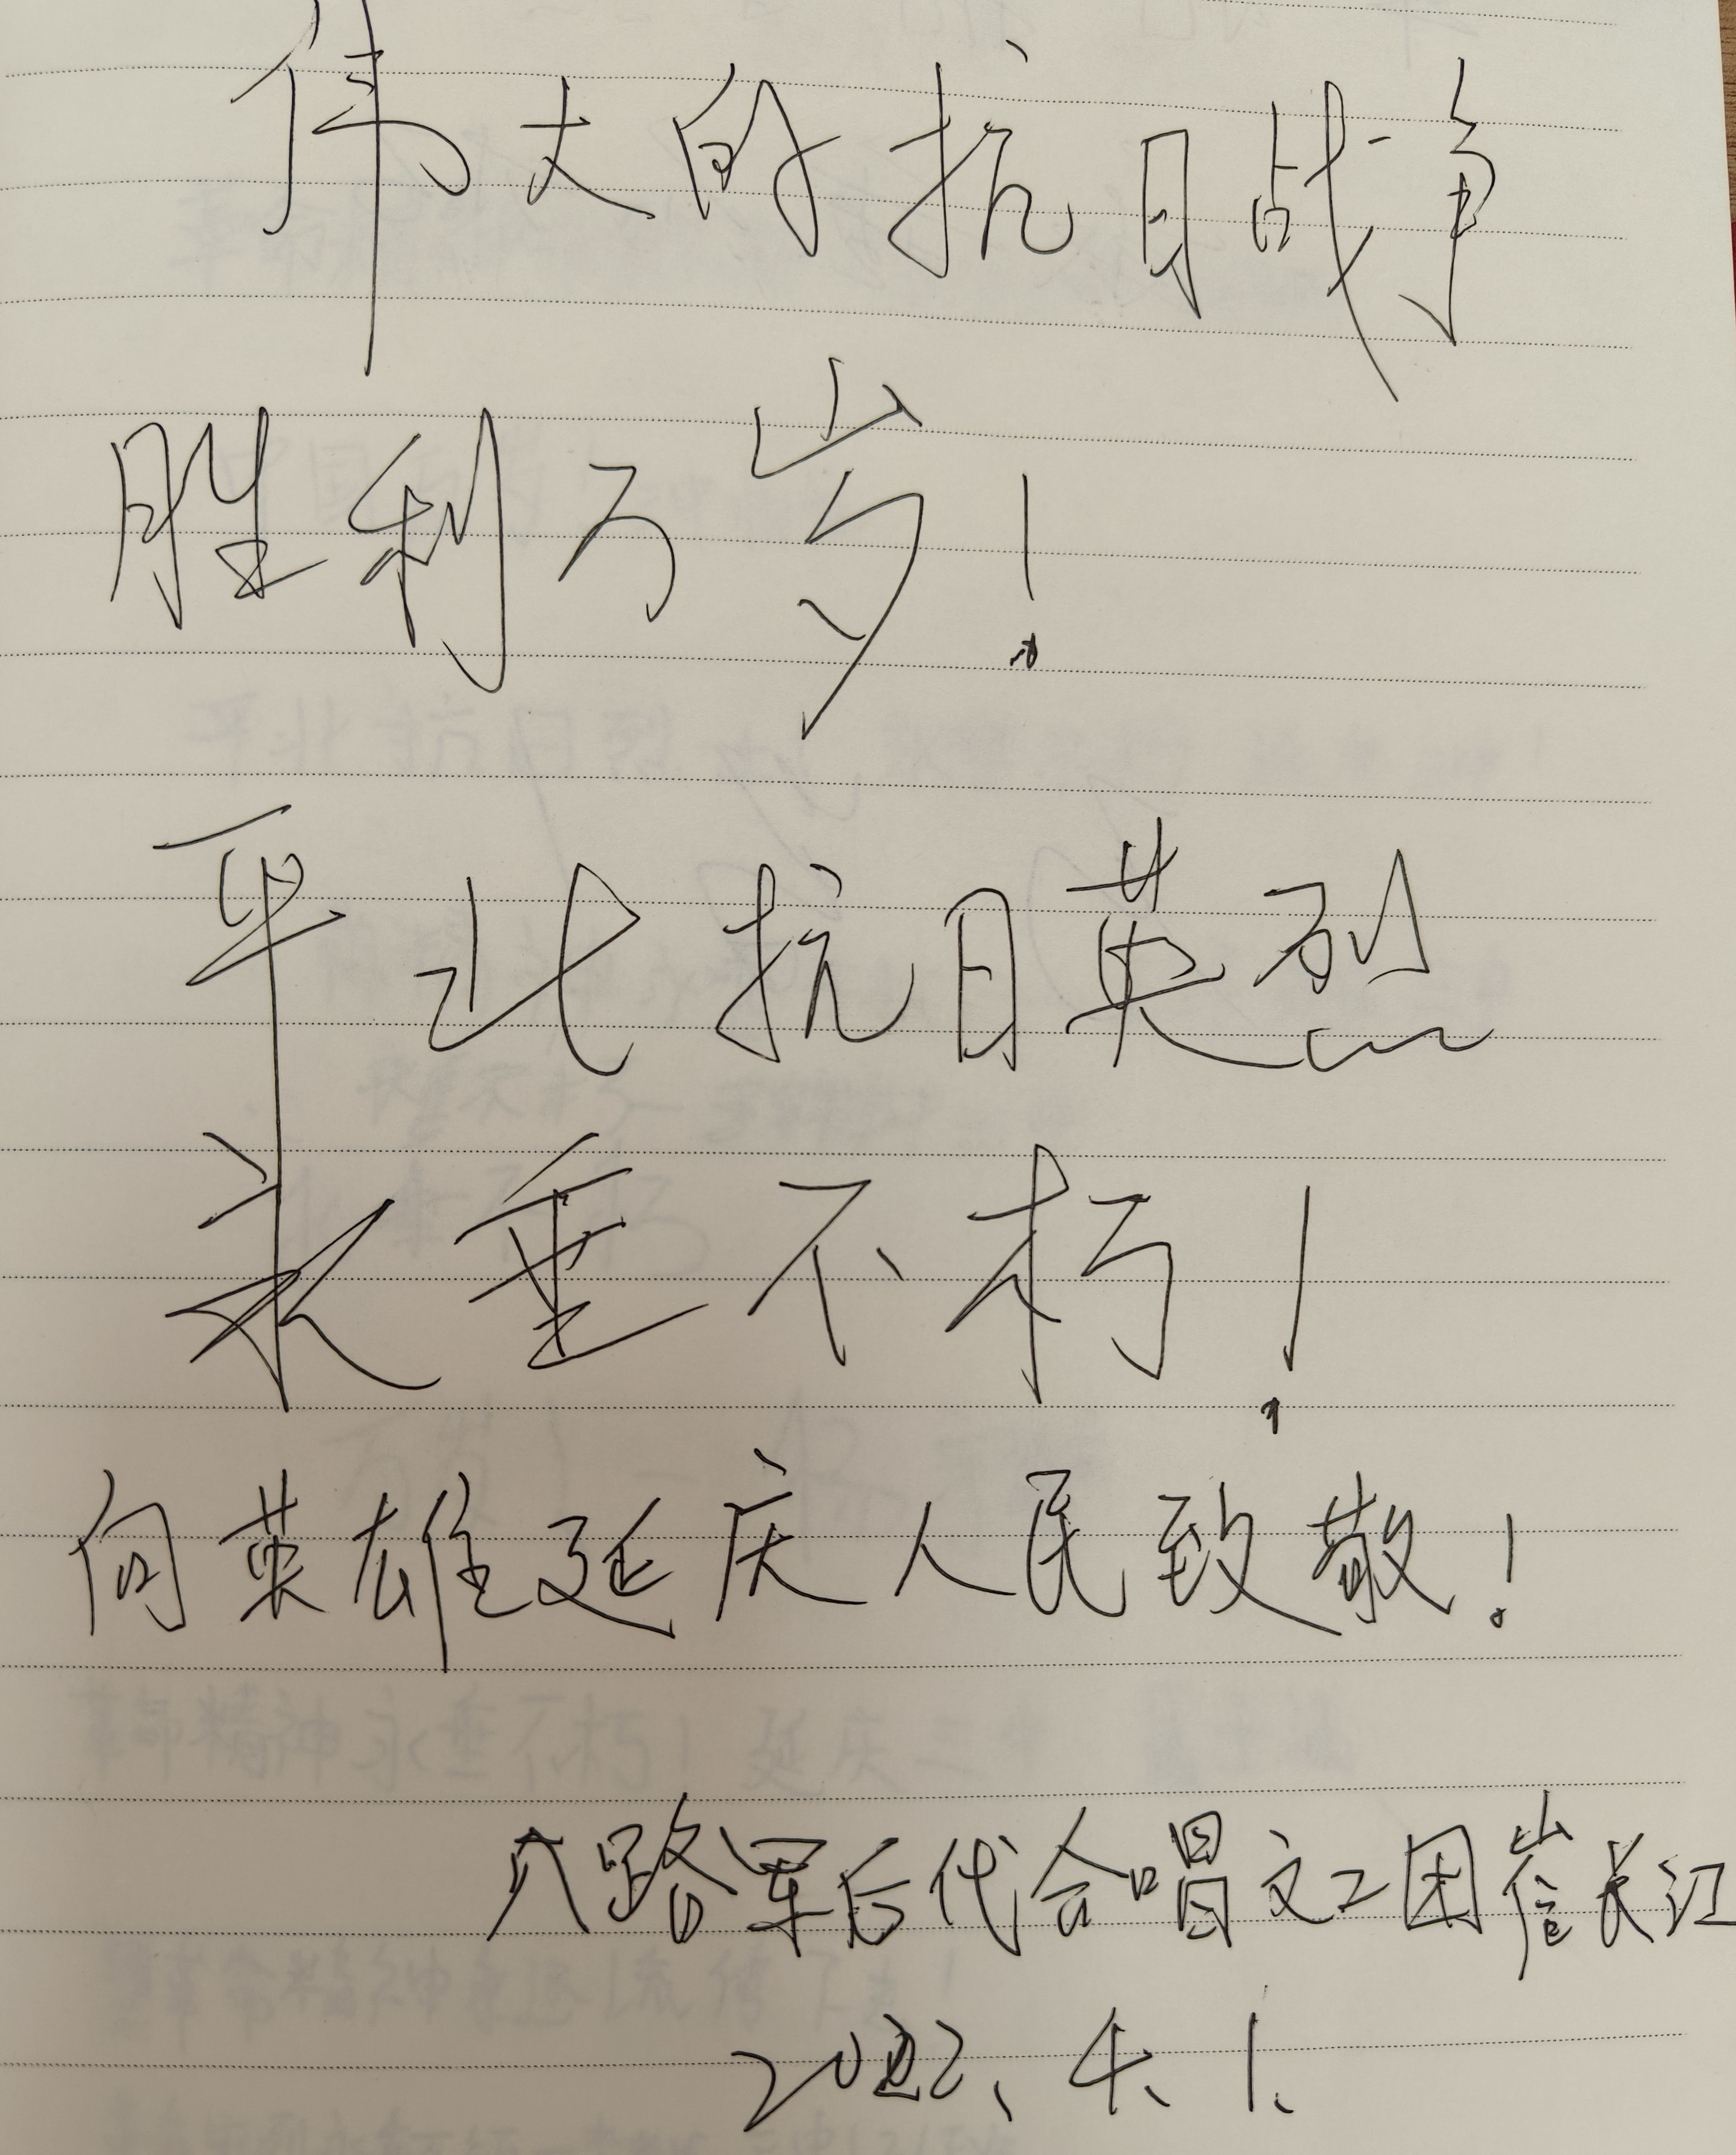 伟大的抗日战争
胜利万岁！
平北抗日英烈
永垂不朽！
向英雄延庆人民致敬！
八路军后代合唱文工团崔长江
2022、4、1、